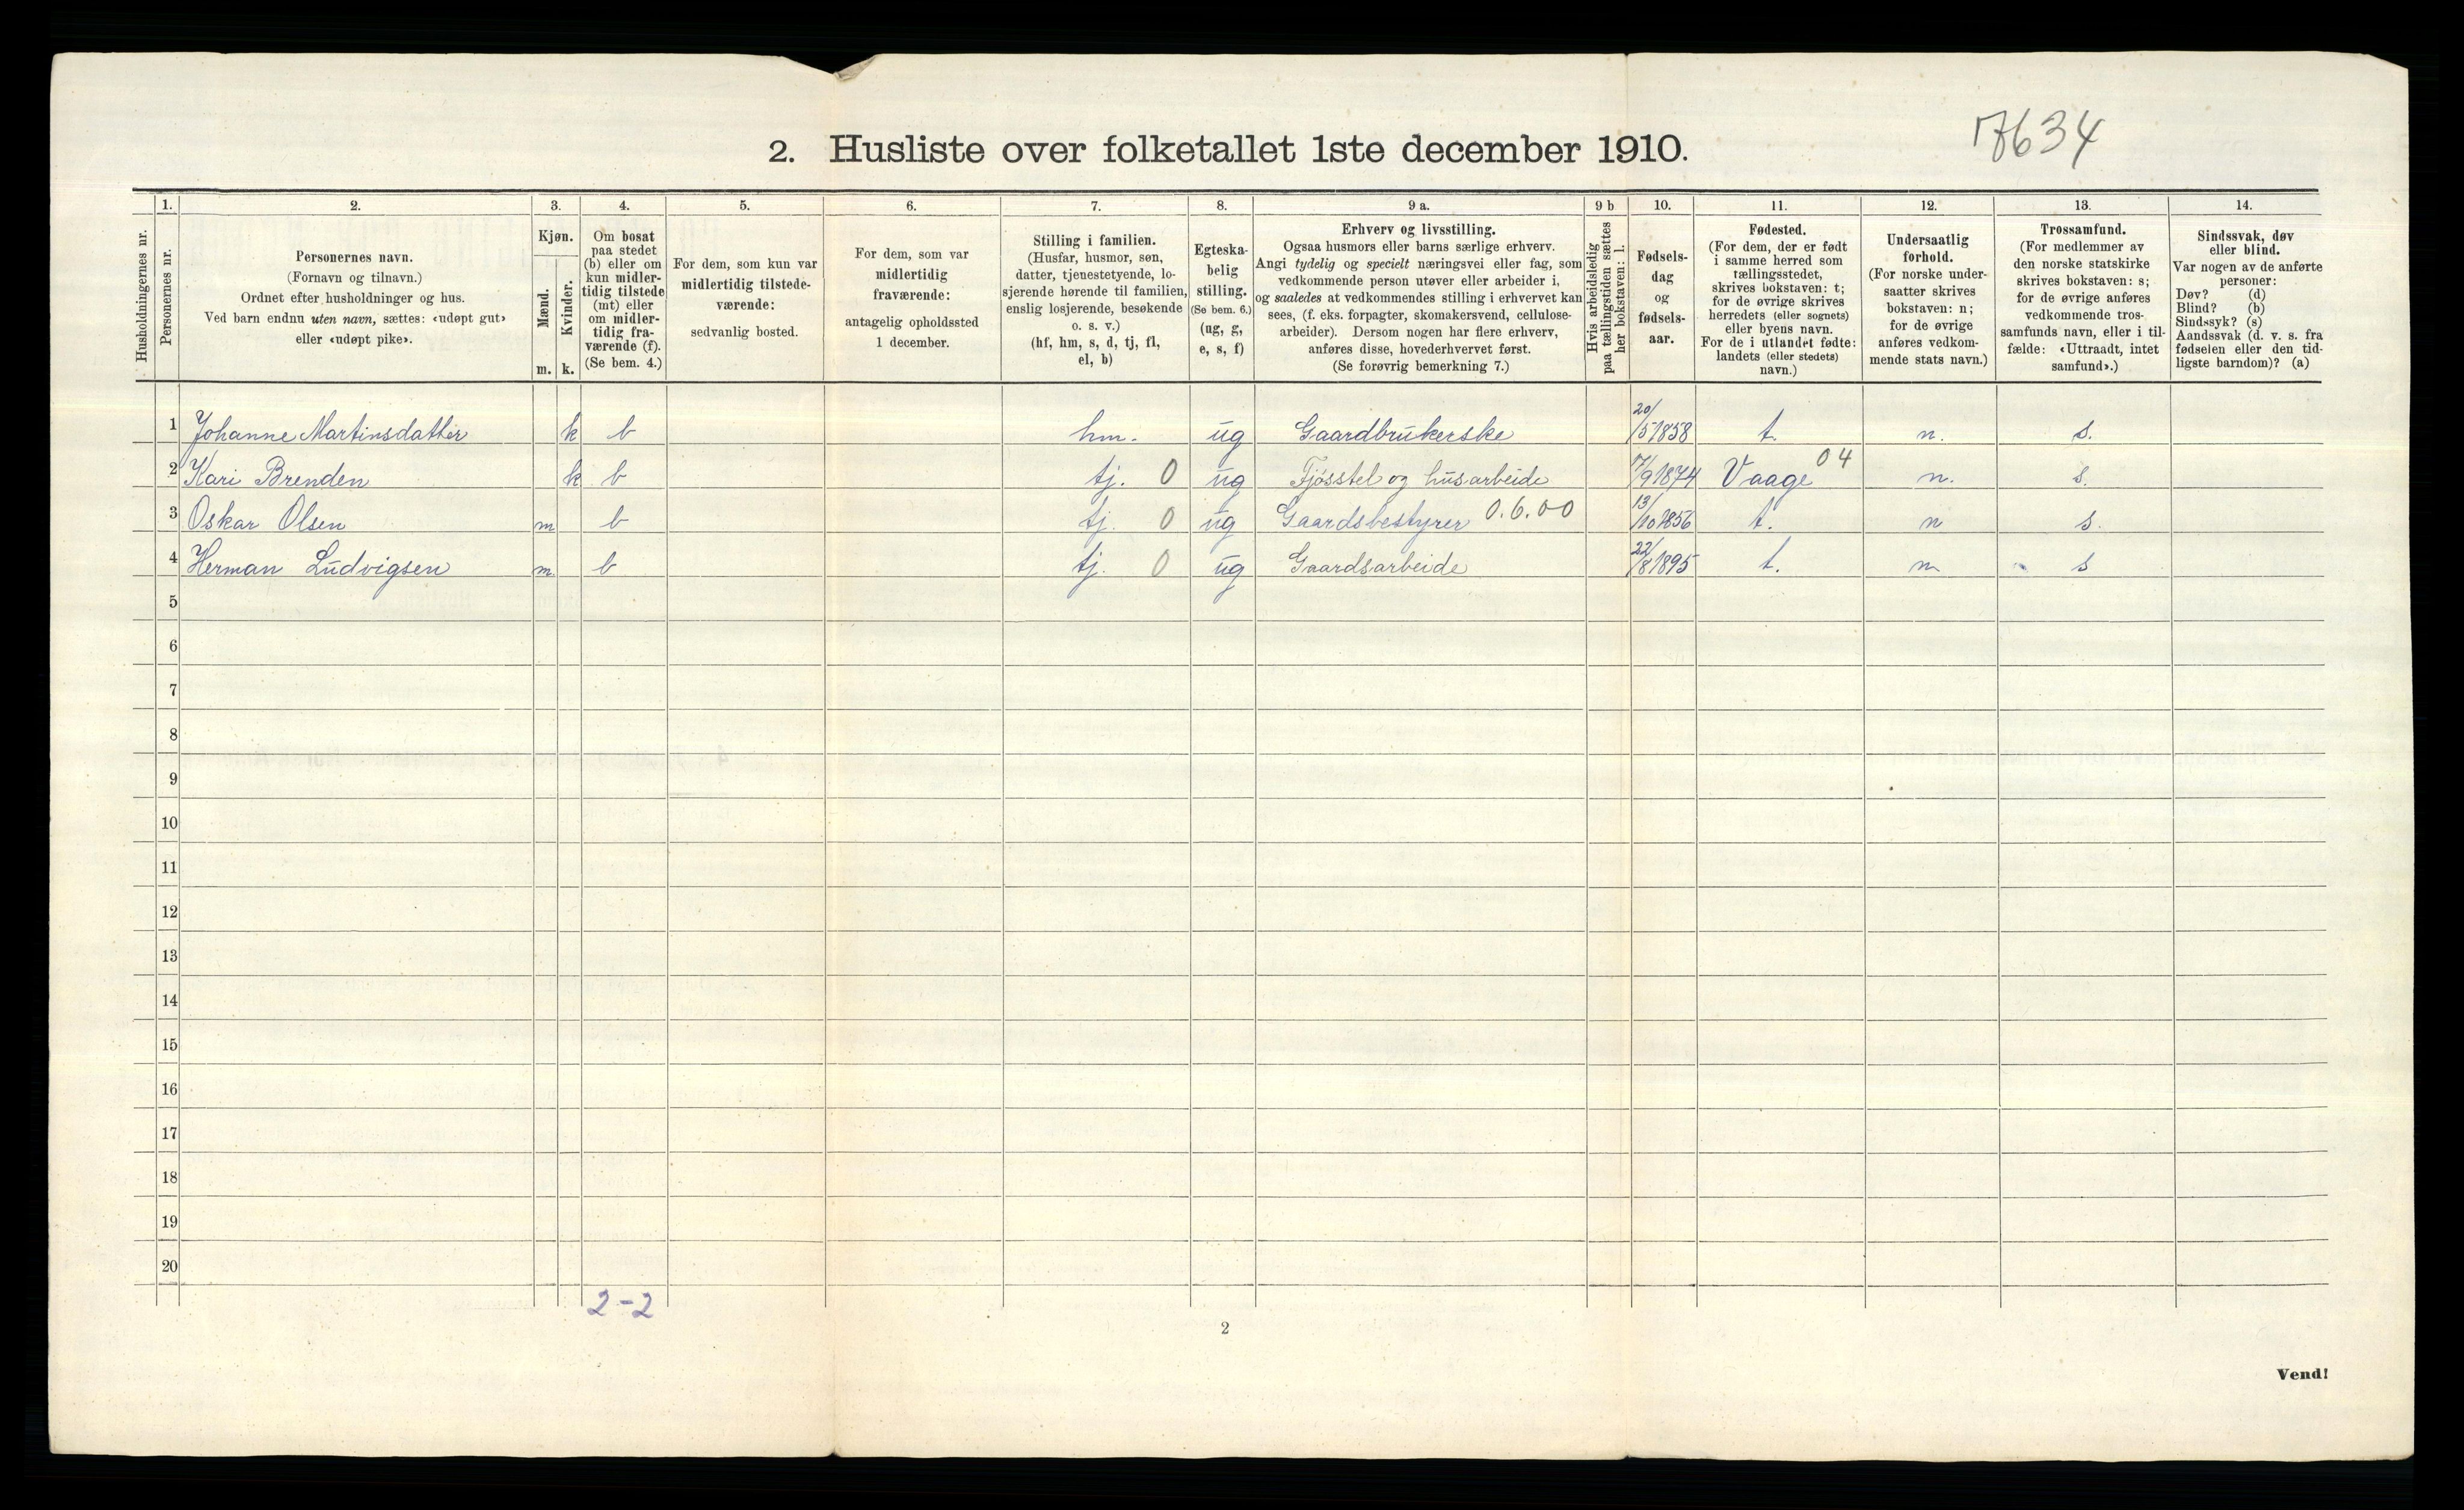 2. Husliste over folketallet 1ste december 1910.
7634
Husholdningernes nr.
1.
Personernes nr.
2.
Personernes navn.
(Fornavn og tilnavn.)
Ordnet efter husholdninger og hus.
Ved barn endnu uten navn, sættes: «udøpt gut»
eller «udøpt pike».
3.
Kjøn.
Mænd.
Kvinder.
m. k.
4.
Om bosat
paa stedet
(b) eller om
kun midler-
tidig tilstede
(mt) eller
om midler-
tidig fra-
værende (f).
(Se bem. 4.)
5.
For dem, som kun var
midlertidig tilstede-
værende:
sedvanlig bosted.
6.
For dem, som var
midlertidig
fraværende:
antagelig opholdssted
1 december.
7.
Stilling i familien.
(Husfar, husmor, søn,
datter, tjenestetyende, lo-
sjerende hørende til familien,
enslig losjerende, besøkende
o. s. v.)
(hf, hm, s, d, tj, fl,
el, b)
8.
Egteska-
belig
stilling.
(Se bem. 6.)
(ug, g,
e, s, f)
9 a.
Erhverv og livsstilling.
Ogsaa husmors eller barns særlige erhverv.
Angi tydelig og specielt næringsvei eller fag, som
vedkommende person utøver eller arbeider i,
og saaledes at vedkommendes stilling i erhvervet kan
sees, (f. eks. forpagter, skomakersvend, cellulose-
arbeider). Dersom nogen har flere erhverv,
anføres disse, hovederhvervet først.
(Se forøvrig bemerkning 7.)
9 b
Hvis arbeidsledig
paa tællingstiden sættes
her bokstaven: l.
10.
Fødsels-
dag
og
fødsels-
aar.
11.
Fødested.
(For dem, der er født
i samme herred som
tællingsstedet,
skrives bokstaven: t;
for de øvrige skrives
herredets (eller sognets)
eller byens navn.
For de i utlandet fødte:
landets (eller stedets)
navn.)
12.
Undersaatlig
forhold.
(For norske under-
saatter skrives
bokstaven: n;
for de øvrige
anføres vedkom-
mende stats navn.)
13.
Trossamfund.
(For medlemmer av
den norske statskirke
skrives bokstaven: s;
for de øvrige anføres
vedkommende tros-
samfunds navn, eller i til-
fælde: «Uttraadt, intet
samfund».)
14.
Sindssvak, døv
eller blind.
Var nogen av de anførte
personer:
Døv? (d)
Blind? (b)
Sindssyk? (s)
Aandssvak (d. v. s. fra
fødselen eller den tid-
ligste barndom)? (a)
1 Johanne Martinsdatter k b hm. ug Gaardbrukerske 20/5 1858 t. n. s.
2 Kari Brenden k b tj. 0 ug Fjøsstel og husarbeide 17/9 1874 Vaage 04 n. s.
3 Oskar Olsen m b tj. 0 ug Gaardsbestyrer 0.6.00 13/10 1856 t. n s.
4 Herman Ludvigsen m. b tj. 0 ug Gaardsarbeide 22/8 1895 t. n s
5
6
7
8
9
10
11
12
13
14
15
16
17
18
19
20
2-2
2
Vend!